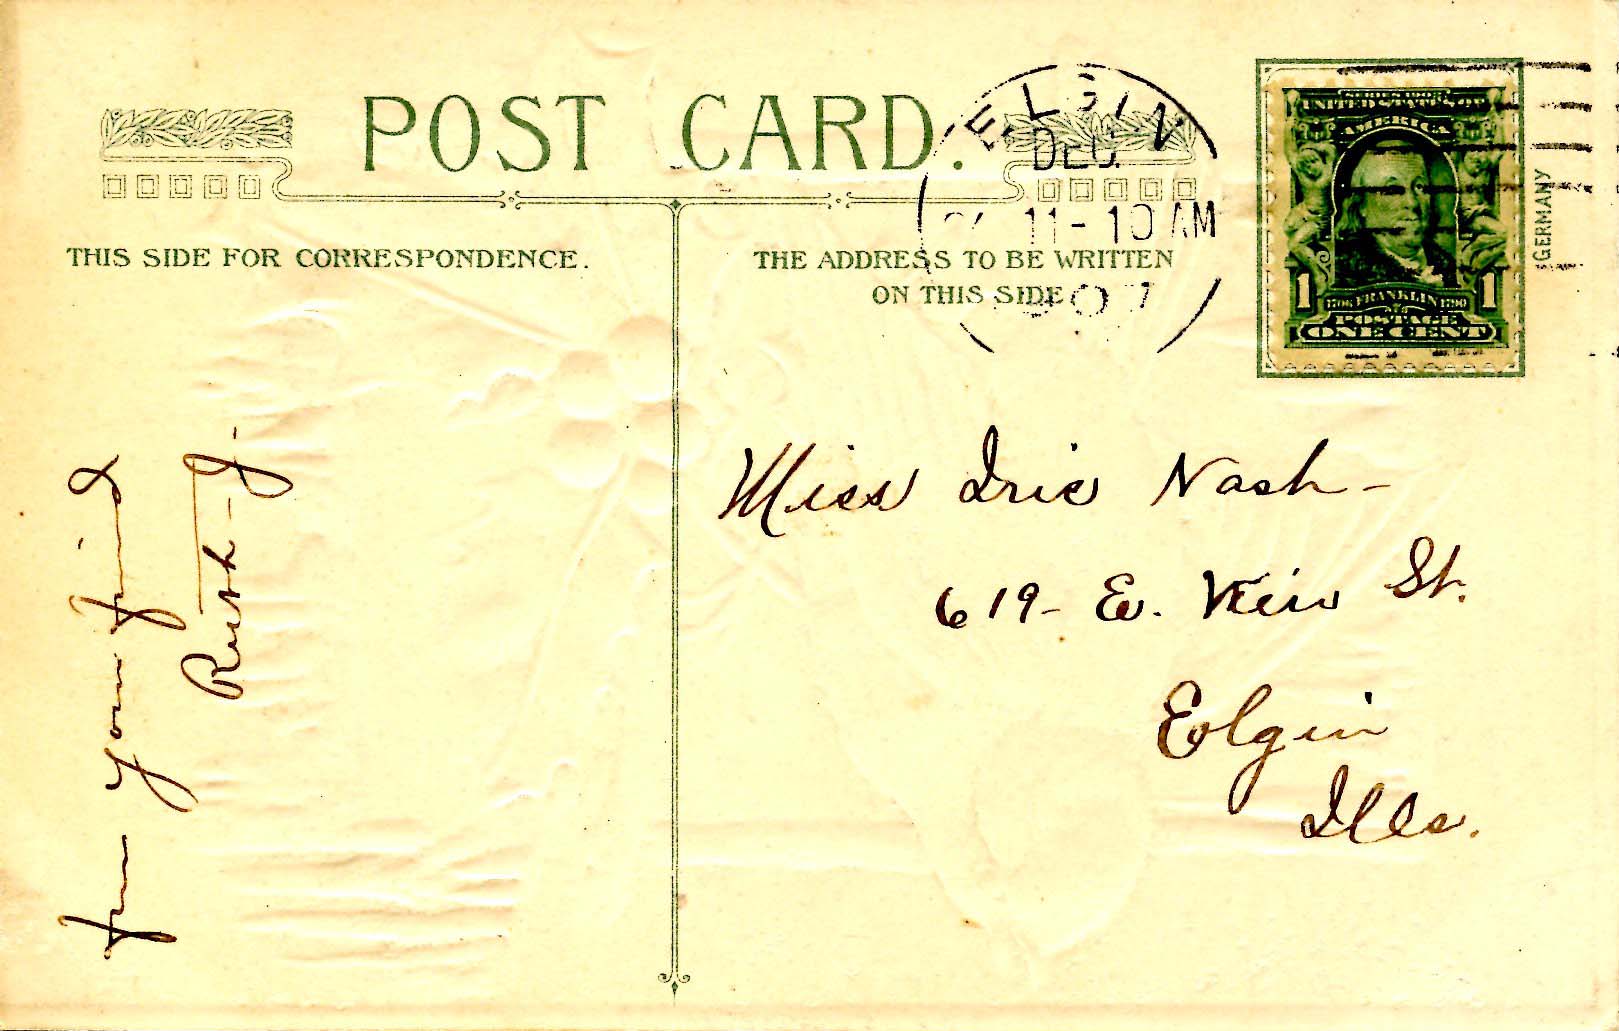 POST CARD.
THIS SIDE FOR CORRESPONDENCE.
THE ADDRESS TO BE WRITTEN
ON THIS SIDE
ELGIN
DEC
11-10 AM
1907
SERIES 1902
UNITED STATES OF
AMERICA
1 1706 FRANKLIN 1790 1
POSTAGE
ONE CENT
GERMANY
from your friend
Ruth J.
Miss Iris Nash-
619- E. St.
Elgin
Ills.